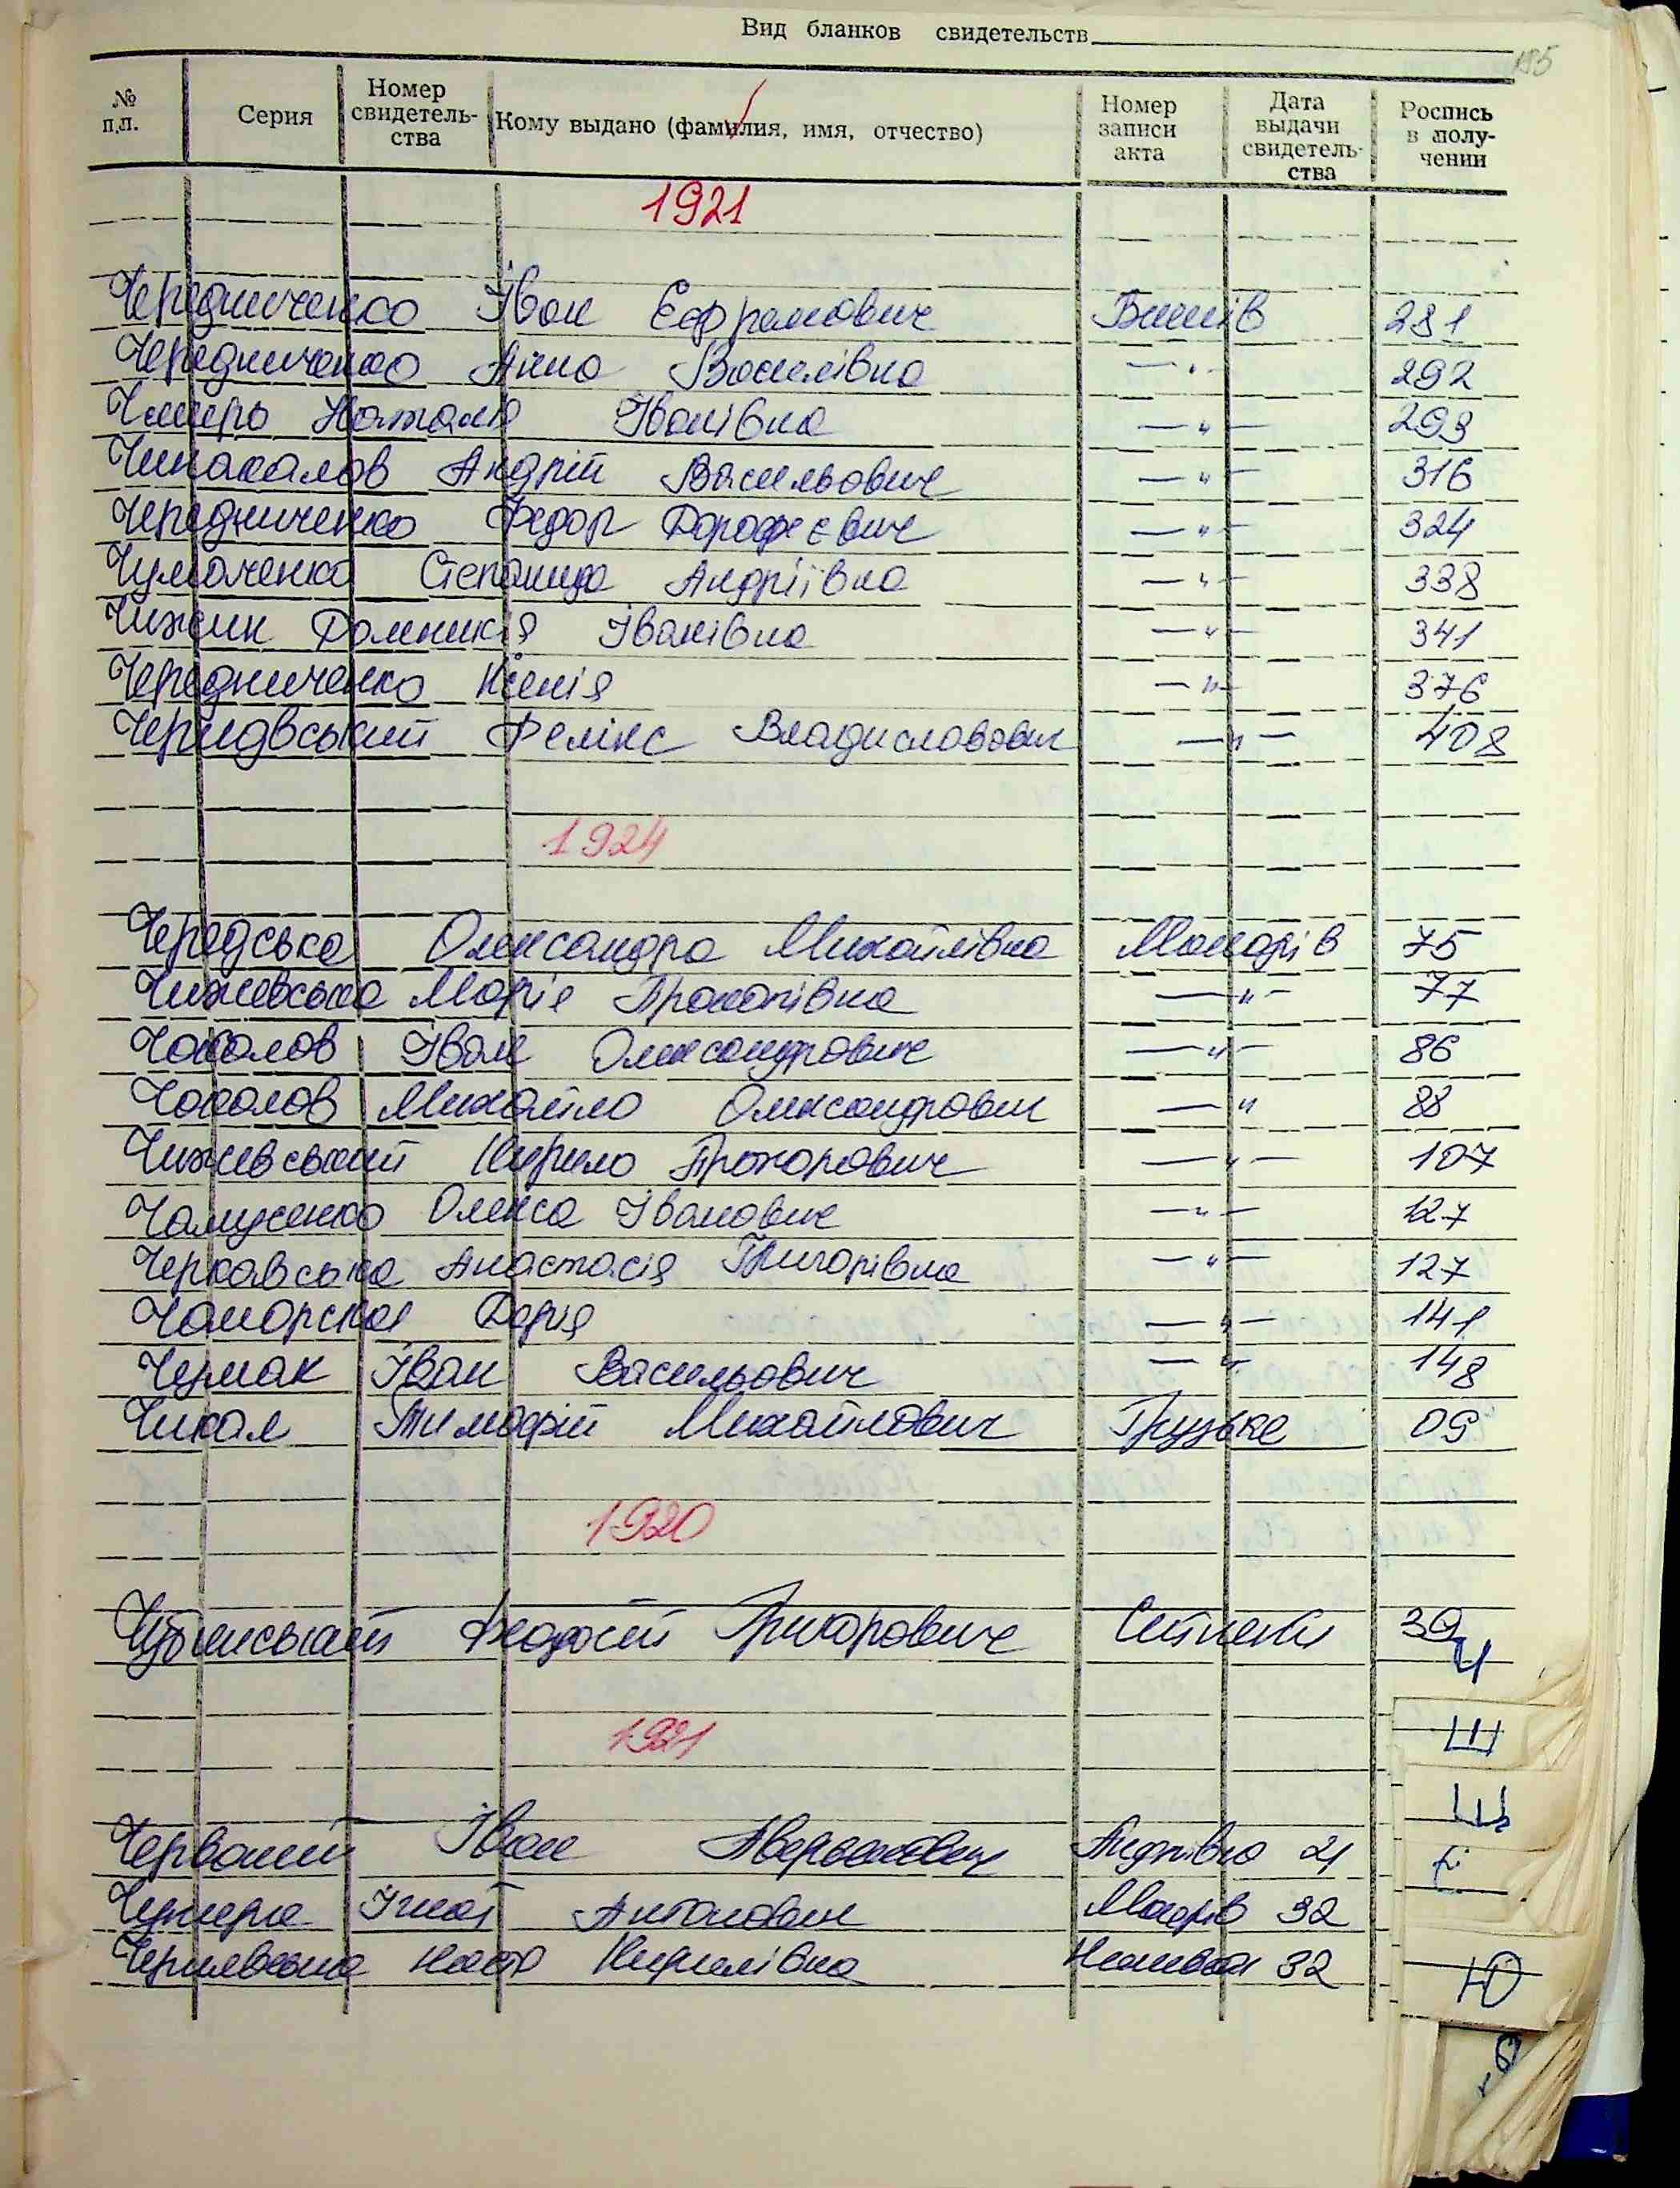 Вид бланков свидетельств
195
№ п.п. Серия Номер свидетель-ства Кому выдано (фамилия, имя, отчество) Номер записи акта Дата выдачи свидетель-ства Роспись в полу-чении
1921
Чередниченко Іван Ефремович 281
Чередниченко Анна Василівна —"— 292
Наталія Іванівна —"— 293
Чинакалов Андрій Васильович —"— 316
Чередниченко Федор Дорофеєвич —"— 324
Чумаченко Степанида Андріївна —"— 338
Чижик Домникія Іванівна —"— 341
Чередниченко Ксенія —"— 376
Фелікс Владиславович —"— 408
1924
Чередська Олександра Михайлівна Макарів 75
Чижевська Марія Прокопівна —"— 77
Чоколов Іван Олександрович —"— 86
Чоколов Михайло Олександрович —"— 88
Чижевський Кирило Прохорович —"— 107
Олекса Іванович —"— 127
Черкавська Анастасія Григорівна —"— 127
Дарія —"— 141
Чермак Іван Васильович —"— 148
Чикал Тимофій Михайлович Грузьке 09
1920
Чубинський Феодосій Григорович Ситняки 39
Ч
1921
Ш
Щ
Червоний Іван Андріївка 21
Ігнат Антонович Макарів 32
Настя Кирилівна 32
Ю